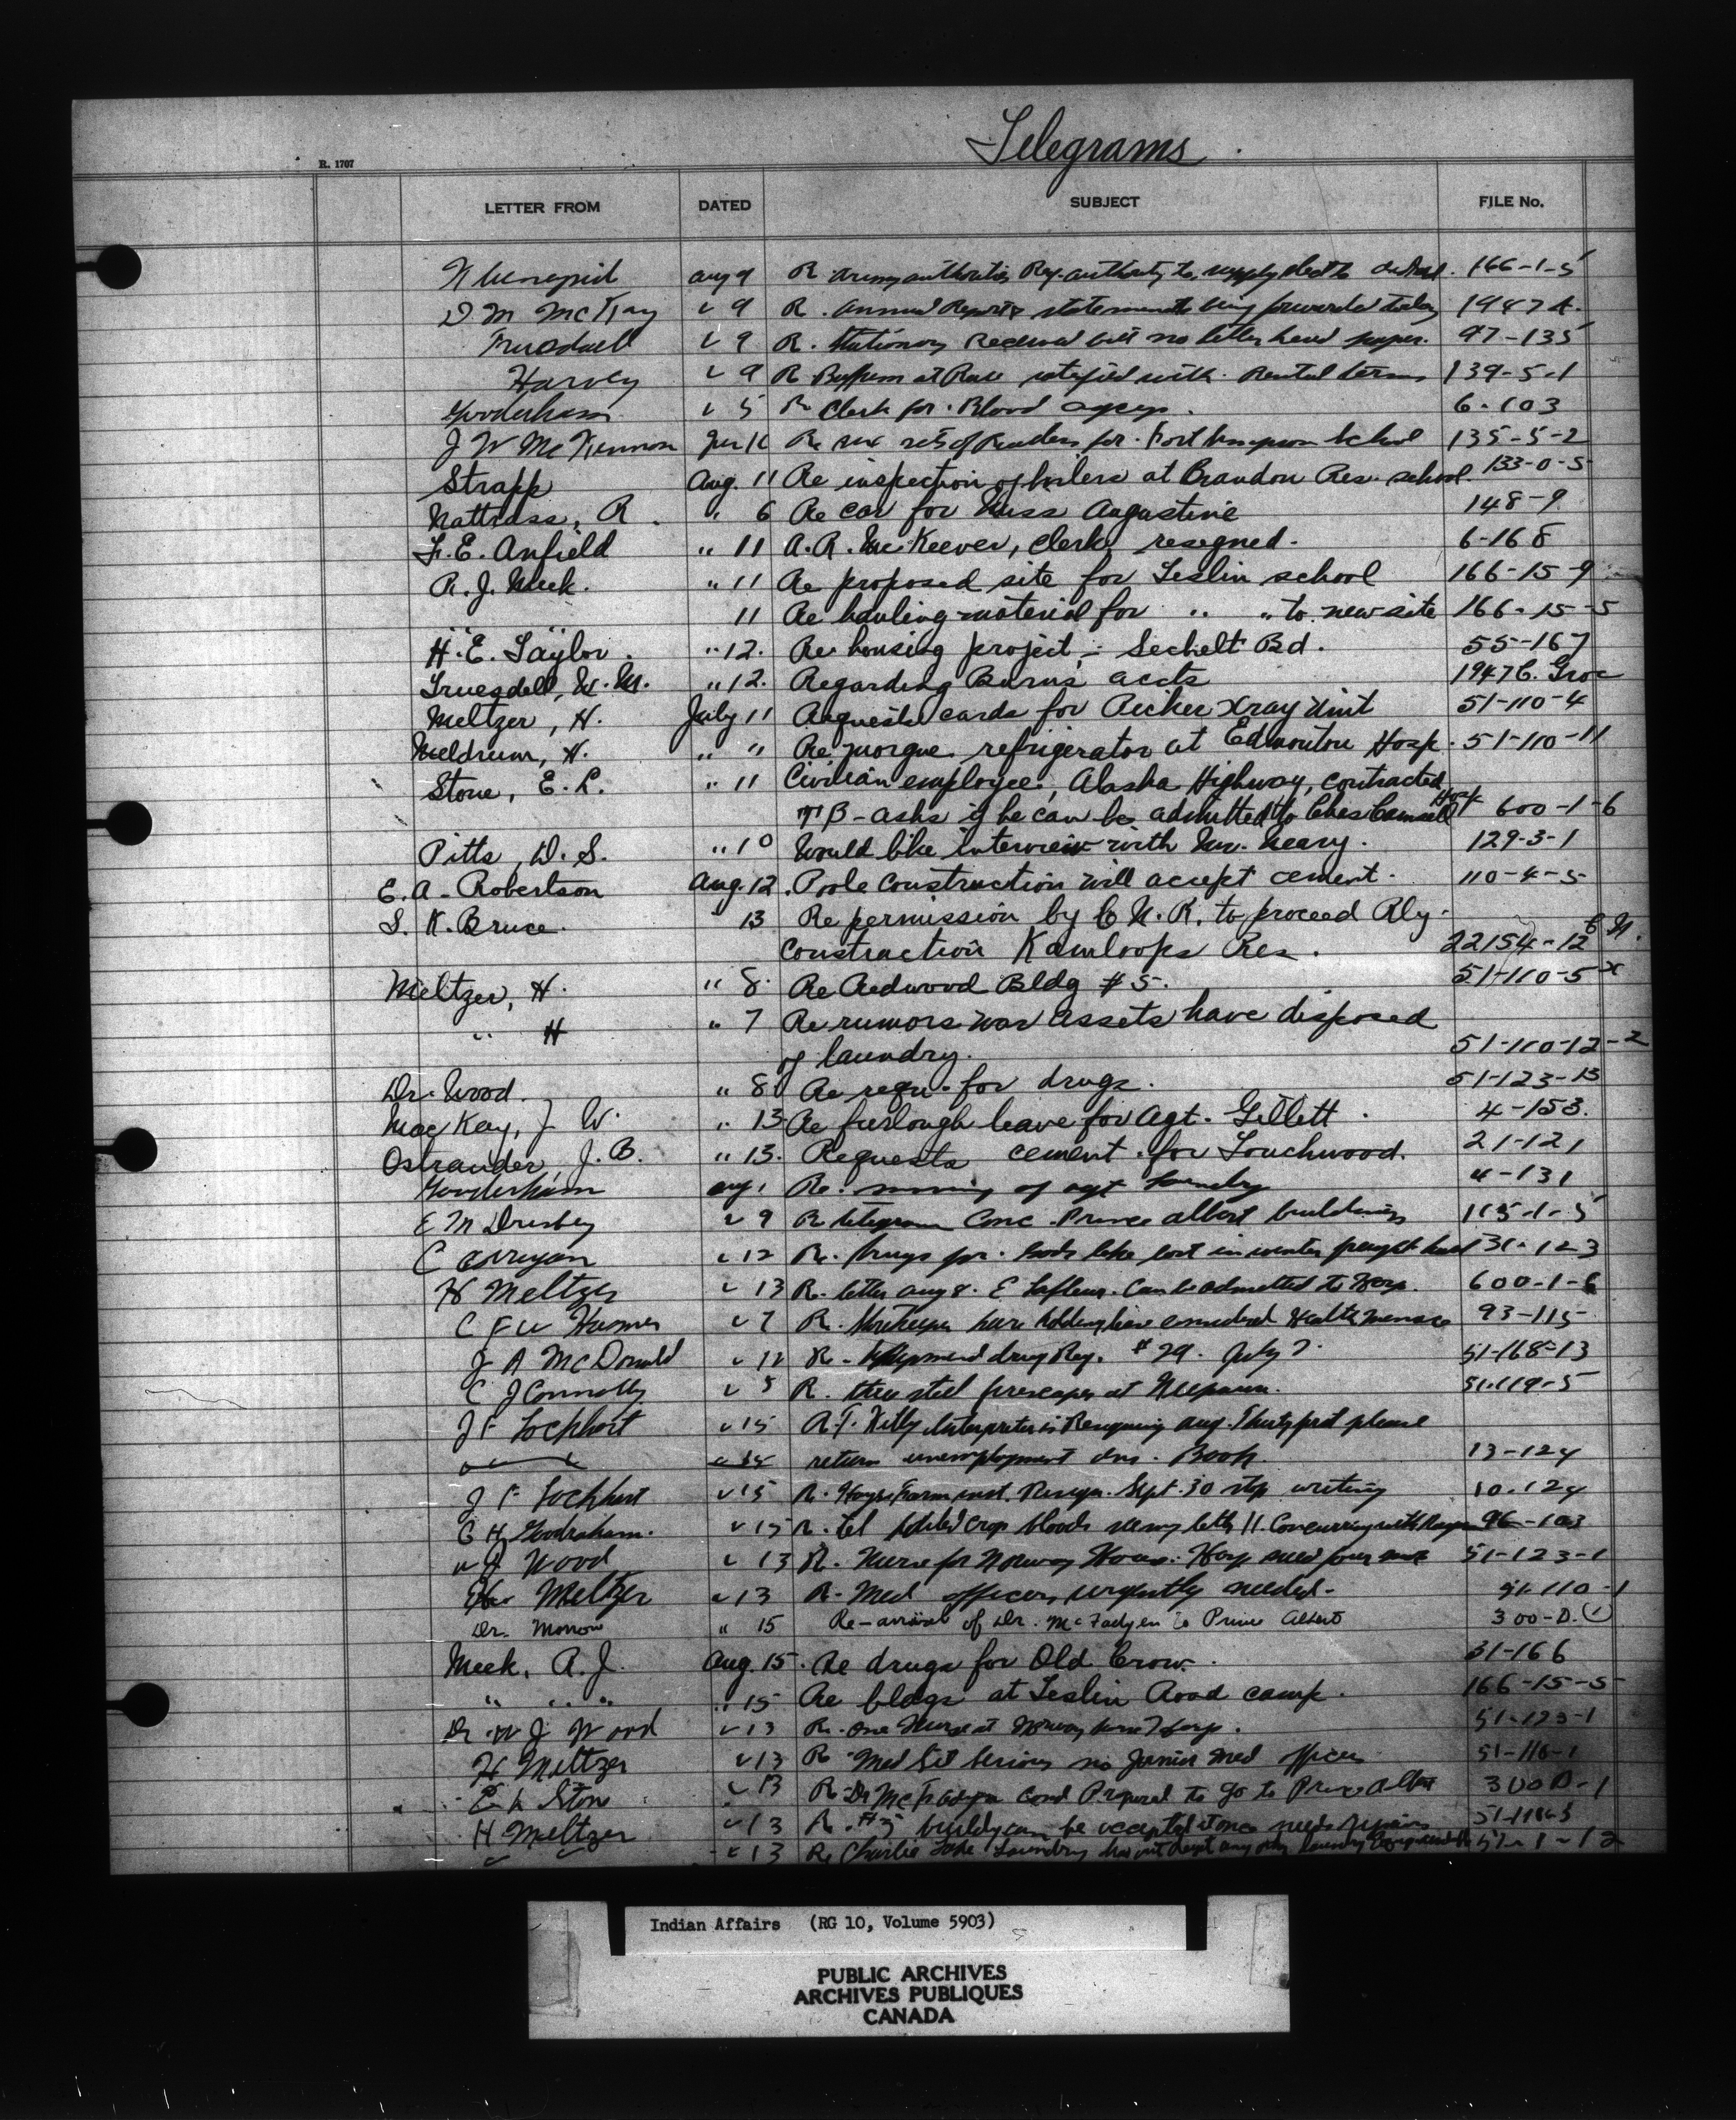 Telegrams
R. 1707
LETTER FROM DATED SUBJECT FILE No.
Aug 9 R. Army authorities Req. authority to supply 166-1-5
D M McKay " 9 R. Annual Reports statements being forwarded today 1947 A.
Truesdell " 9 R. Stationery Received but no letter head paper. 97-135
Harvey " 9 R. satisfied with Rental terms 139-5-1
Gooderham " 5 R. Clerk for Blood agency. 6-103
J W McKinnon 16 Re six sets of Readers for Fort Simpson School 135-5-2
Strapp Aug. 11 Re inspection of boilers at Brandon Res. school. 133-0-5
Nattrass, R. " 6 Re car for Miss Augustine 148-9
F. E. Anfield " 11 A. R. McKeever, clerk, resigned. 6-168
R. J. Meek. " 11 Re proposed site for Teslin school 166-15-9
" " 11 Re hauling material for " " to new site 166-15-5
H. E. Taylor. " 12. Re housing project, - Sechelt Bd. 55-167
Truesdell, W. M. " 12. Regarding Burns accts 1947 C. Groc
Meltzer, H. July 11 Requests cards for Picker Xray Unit 51-110-4
Meldrum, H. " " Re morgue refrigerator at Edmonton Hosp. 51-110-11
Stone, E. L. " 11 Civilian employee, Alaska Highway, contracted
TB - asks if he can be admitted to Chas Camsell Hosp 600-1-6
Pitts, D. S. " 10 Would like interview with Mr. Neary. 129-3-1
E. A. Robertson Aug. 12. Poole Construction will accept cement. 110-4-5
S. K. Bruce. " 13 Re permission by C. N. R. to proceed Rly.
construction Kamloops Res. 22154-12 C N.
Meltzer, H. " 8. Re Redwood Bldg # 5. 51-110-5 x
" H " 7 Re rumors War Assets have disposed
of laundry. 51-110-12-2
Dr. Wood. " 8 Re requ. for drugs. 51-123-13
MacKay, J W. " 13 Re furlough leave for Agt. Gillett. 4-153.
Ostrander, J. B. " 13. Requests cement for Touchwood. 21-121
Gooderham Aug. 1 Re. of agt 4-131
E M " 9 R telegram Conc. Prince Albert buildings 115-1-5
C " 12 R. Drugs for Gods Lake lost in winter freight 31-123
H Meltzer " 13 R. letter Aug 8. E Lafleur. Can be admitted to Hosp. 600-1-6
C F " 7 R. considered Health menace 93-115
J A McDonald " 12 R. drug Req. # 29. July 7. 51-168-13
C J Connolly " 5 R. three steel fire escapes at Neepawa. 51-119-5
J F Lockhart " 15 A. F. Kelly Interpreter is Resigning Aug. Thirty first please
return unemployment ins. Book. 13-124
J F Lockhart " 15 R. Hays Farm inst. Resign. Sept. 30 stop writing 10-124
G H Gooderham. " 15 R. Tel crop bloods see my letter 11. Concurring with 96-103
W J Wood " 13 R. Nurse for Norway House Hosp need 51-123-1
H Meltzer " 13 R. Med officer urgently needed. 51-110-1
Dr. Morrow " 15 Re-arrival of Dr. McFadyen to Prince Albert 300-D. (1)
Meek, R. J. Aug. 15. Re drugs for Old Crow. 31-166
" " " " 15 Re bldgs at Teslin Road camp. 166-15-5
Dr W J Wood " 13 R. One Nurse at Norway House Hosp. 51-123-1
H Meltzer " 13 R Med Sit Serious no Junior Med officer 51-110-1
E L Stone " 13 R Dr McFadyen Prepared to go to Prince Albert 300 D-1
H Meltzer " 13 R. #5 building can be occupied at once needs repairs
" " " 13 R. Charlie Lake Laundry
Indian Affairs (RG 10, Volume 5903)
PUBLIC ARCHIVES
ARCHIVES PUBLIQUES
CANADA